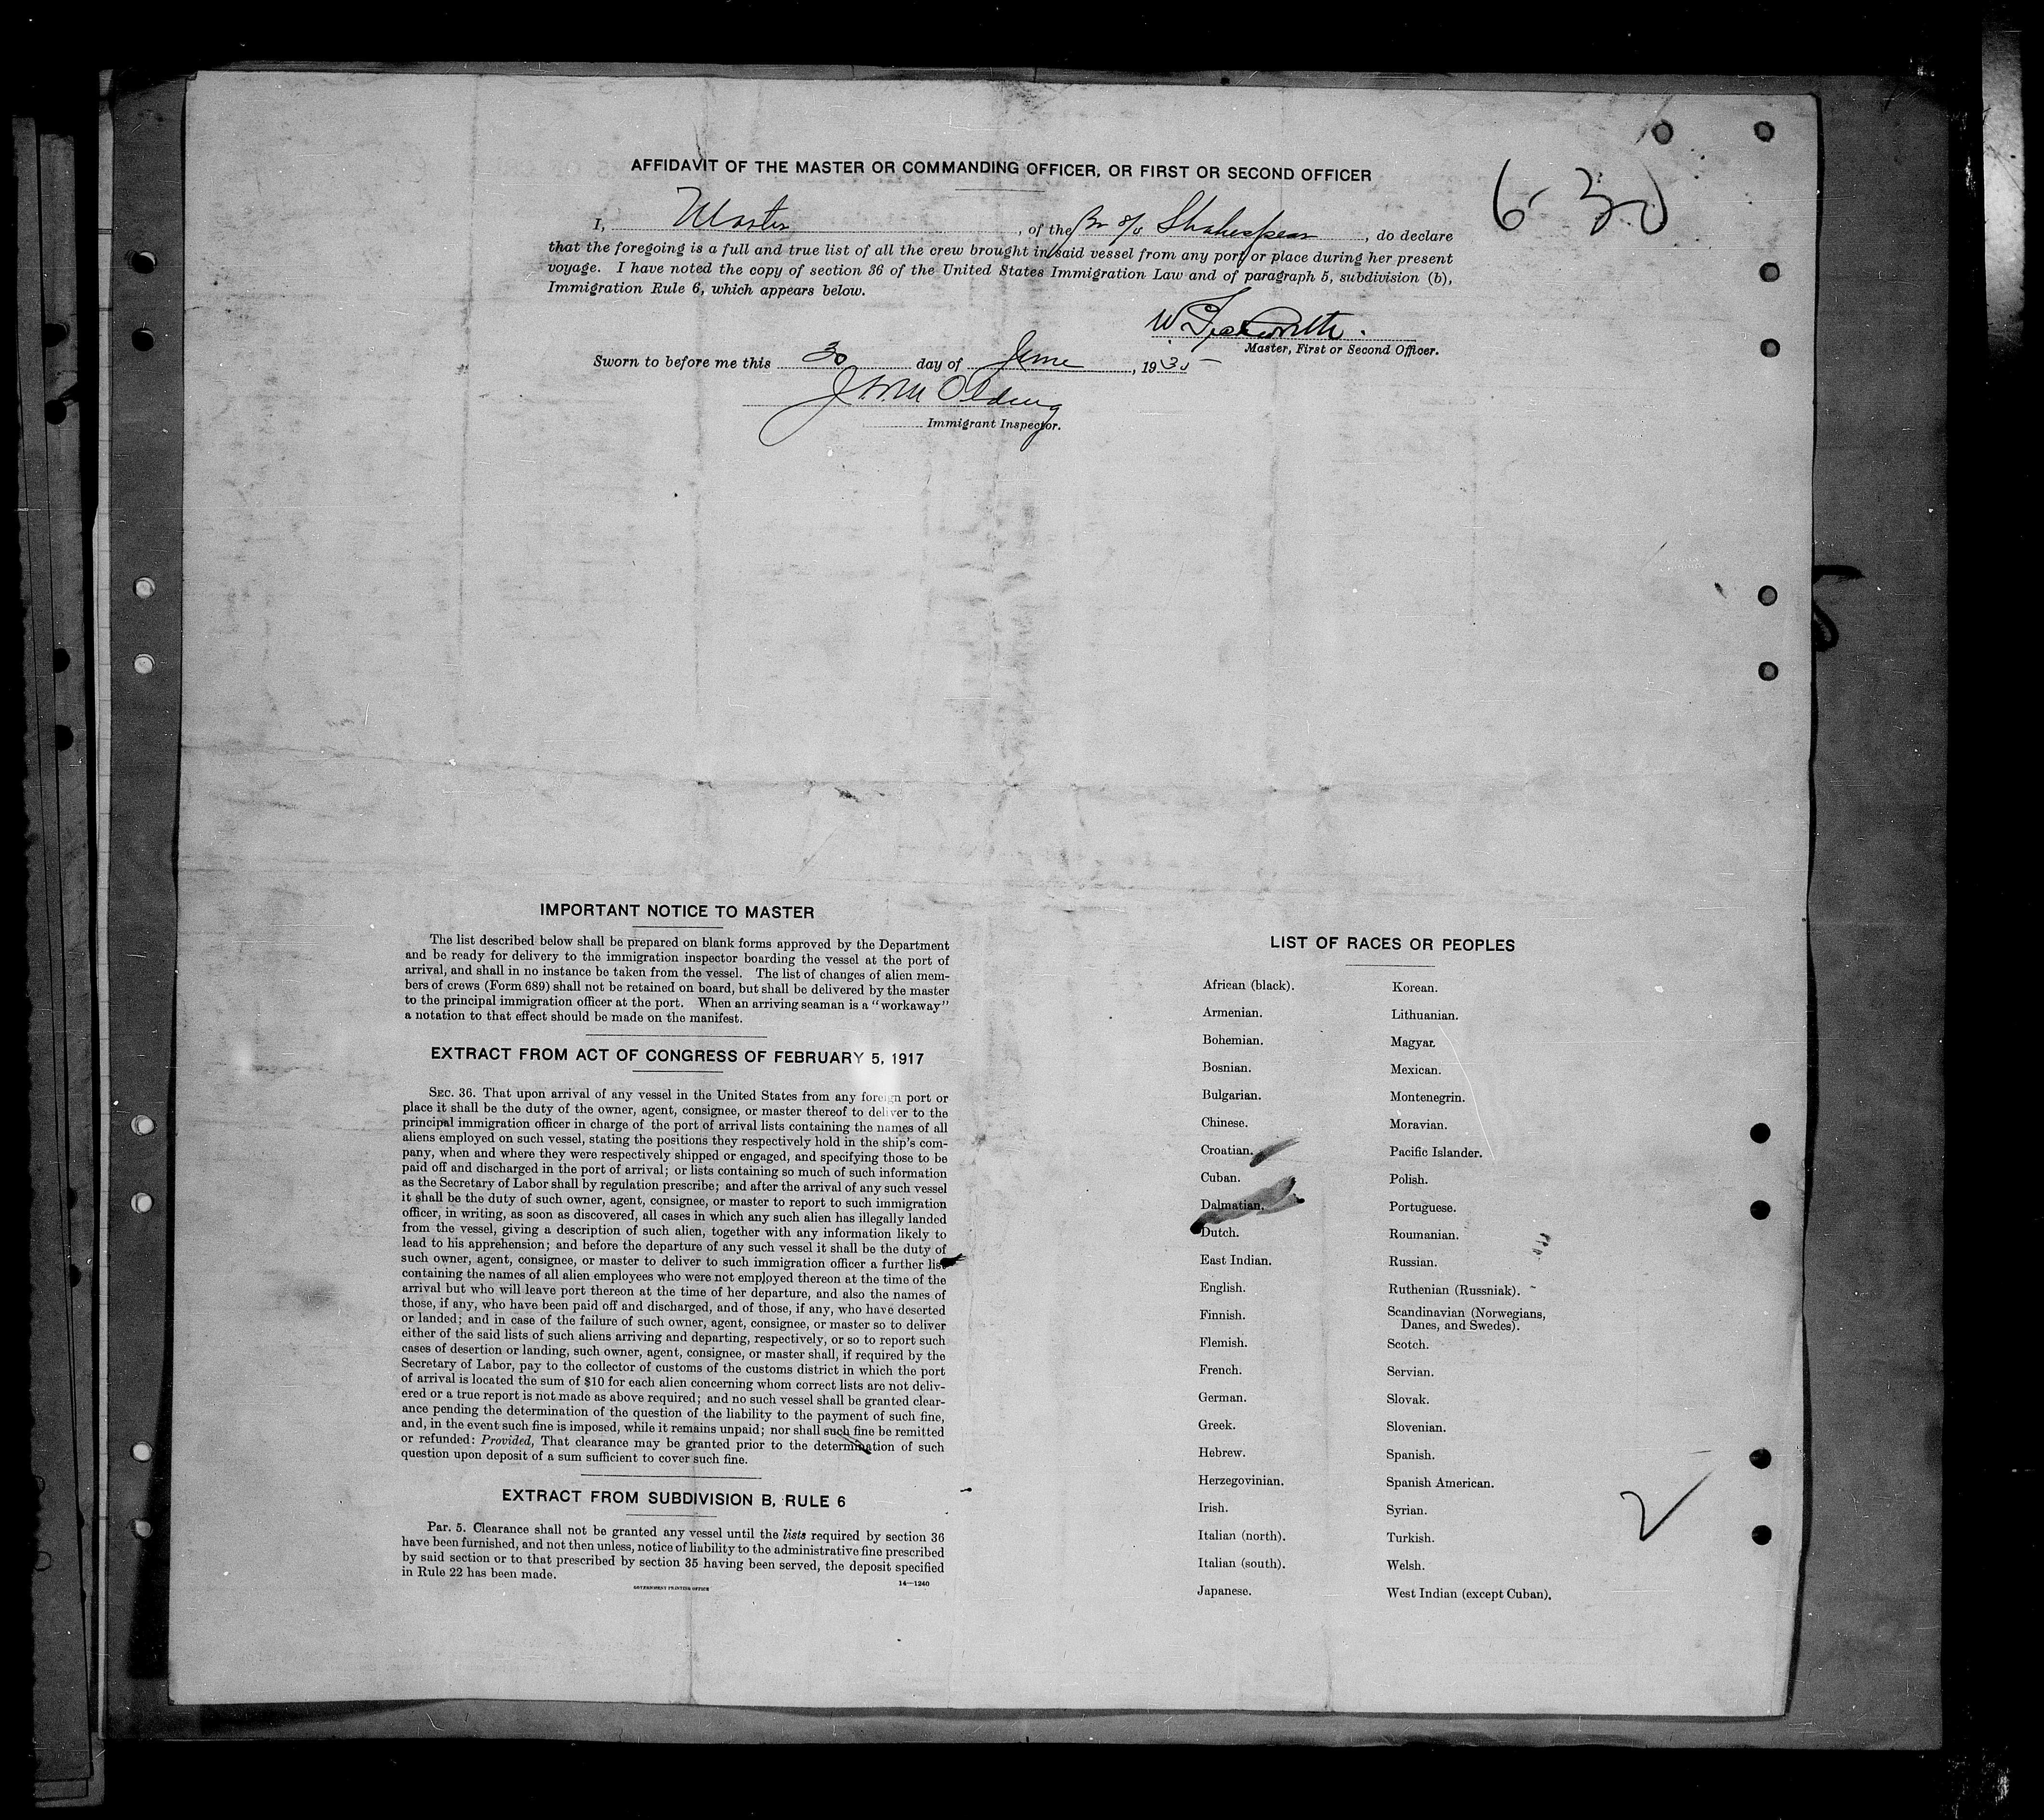 AFFIDAVIT OF THE MASTER OR COMMANDING OFFICER, OR FIRST OR SECOND OFFICER
6 30
I, Master, of the Br s/s Shakespear, do declare
that the foregoing is a full and true list of all the crew brought in said vessel from any port or place during her present
voyage. I have noted the copy of section 36 of the United States Immigration Law and of paragraph 5, subdivision (b),
Immigration Rule 6, which appears below.
W.
Master, First or Second Officer.
Sworn to before me this 30 day of June, 1930
Olding
Immigrant Inspector.
IMPORTANT NOTICE TO MASTER
The list described below shall be prepared on blank forms approved by the Department
and be ready for delivery to the immigration inspector boarding the vessel at the port of
arrival, and shall in no instance be taken from the vessel. The list of changes of alien mem-
bers of crews (Form 689) shall not be retained on board, but shall be delivered by the master
to the principal immigration officer at the port. When an arriving seaman is a "workaway"
a notation to that effect should be made on the manifest.
EXTRACT FROM ACT OF CONGRESS OF FEBRUARY 5, 1917
SEC. 36. That upon arrival of any vessel in the United States from any foreign port or
place it shall be the duty of the owner, agent, consignee, or master thereof to deliver to the
principal immigration officer in charge of the port of arrival lists containing the names of all
aliens employed on such vessel, stating the positions they respectively hold in the ship's com-
pany, when and where they were respectively shipped or engaged, and specifying those to be
paid off and discharged in the port of arrival; or lists containing so much of such information
as the Secretary of Labor shall by regulation prescribe; and after the arrival of any such vessel
it shall be the duty of such owner, agent, consignee, or master to report to such immigration
officer, in writing, as soon as discovered, all cases in which any such alien has illegally landed
from the vessel, giving a description of such alien, together with any information likely to
lead to his apprehension; and before the departure of any such vessel it shall be the duty of
such owner, agent, consignee, or master to deliver to such immigration officer a further list
containing the names of all alien employees who were not employed thereon at the time of the
arrival but who will leave port thereon at the time of her departure, and also the names of
those, if any, who have been paid off and discharged, and of those, if any, who have deserted
or landed; and in case of the failure of such owner, agent, consignee, or master so to deliver
either of the said lists of such aliens arriving and departing, respectively, or so to report such
cases of desertion or landing, such owner, agent, consignee, or master shall, if required by the
Secretary of Labor, pay to the collector of customs of the customs district in which the port
of arrival is located the sum of $10 for each alien concerning whom correct lists are not deliv-
ered or a true report is not made as above required; and no such vessel shall be granted clear-
ance pending the determination of the question of the liability to the payment of such fine,
and, in the event such fine is imposed, while it remains unpaid; nor shall such fine be remitted
or refunded: Provided, That clearance may be granted prior to the determination of such
question upon deposit of a sum sufficient to cover such fine.
EXTRACT FROM SUBDIVISION B, RULE 6
Par. 5. Clearance shall not be granted any vessel until the lists required by section 36
have been furnished, and not then unless, notice of liability to the administrative fine prescribed
by said section or to that prescribed by section 35 having been served, the deposit specified
in Rule 22 has been made.
GOVERNMENT PRINTING OFFICE
14—1240
LIST OF RACES OR PEOPLES
African (black).
Armenian.
Bohemian.
Bosnian.
Bulgarian.
Chinese.
Croatian.
Cuban.
Dalmatian.
Dutch.
East Indian.
English.
Finnish.
Flemish.
French.
German.
Greek.
Hebrew.
Herzegovinian.
Irish.
Italian (north).
Italian (south).
Japanese.
Korean.
Lithuanian.
Magyar.
Mexican.
Montenegrin.
Moravian.
Pacific Islander.
Polish.
Portuguese.
Roumanian.
Russian.
Ruthenian (Russniak).
Scandinavian (Norwegians,
Danes, and Swedes).
Scotch.
Servian.
Slovak.
Slovenian.
Spanish.
Spanish American.
Syrian.
Turkish.
Welsh.
West Indian (except Cuban).
2